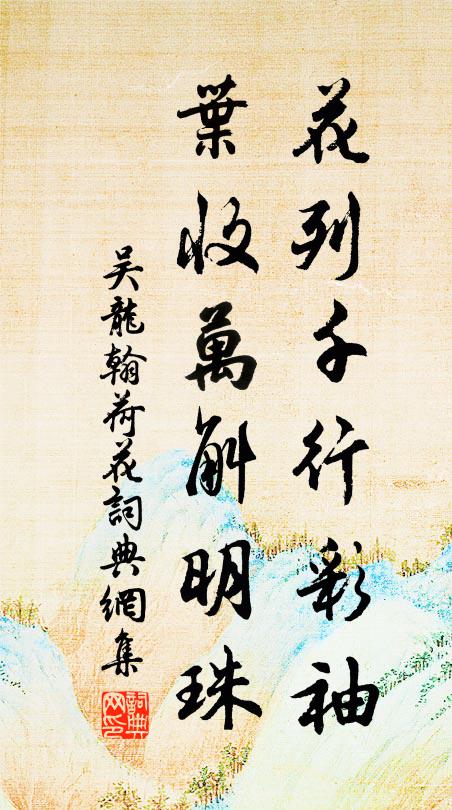 花列千行彩袖
葉收萬斛明珠
吴龍翰荷花詞典網集
詞典网印